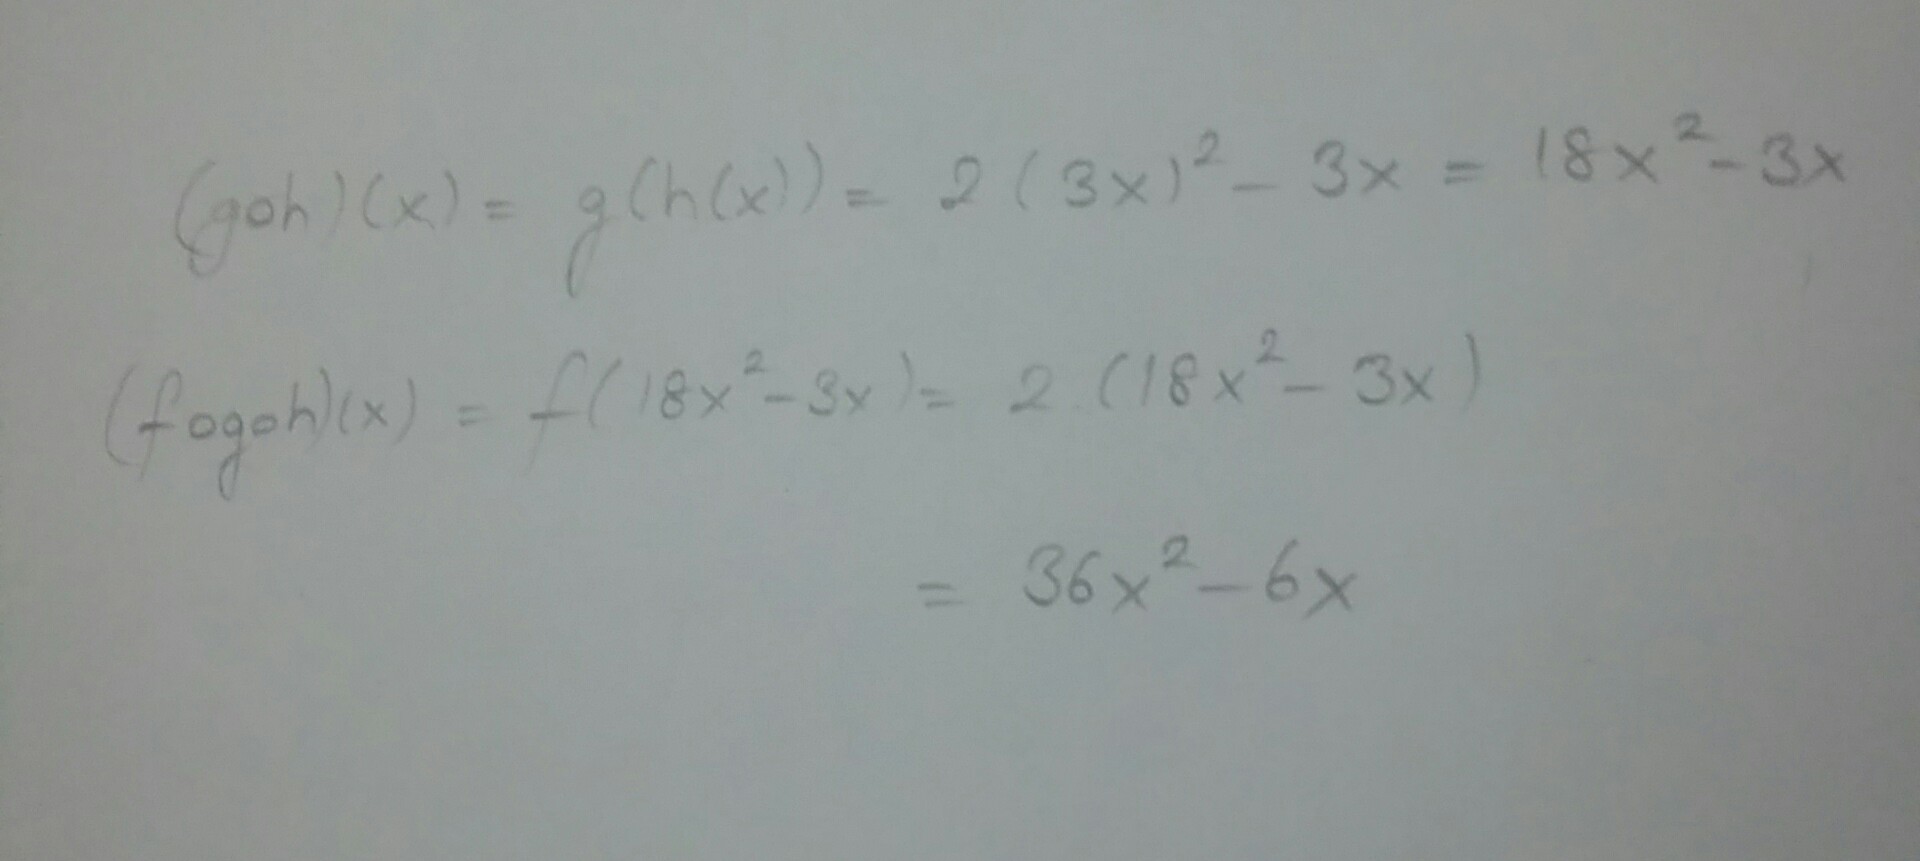 (goh)(x) = g(h(x)) = 2(3x)² - 3x = 18x² - 3x
(fogoh)(x) = f(18x² - 3x) = 2.(18x² - 3x)
= 36x² - 6x